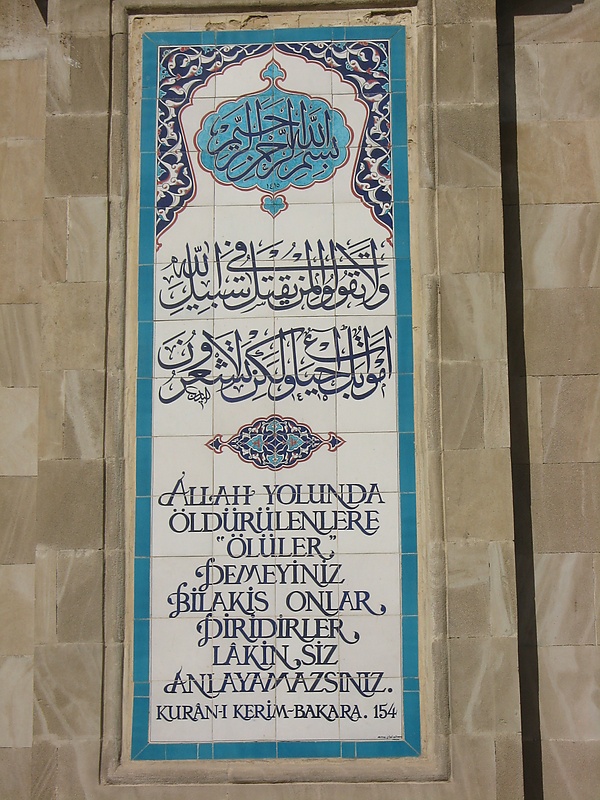 بسم الله الرحمن الرحيم
١٤١٥
ولا تقولوا لمن يقتل في سبيل الله
اموات بل احياء ولكن لا تشعرون
ALLAH YOLUNDA
ÖLDÜRÜLENLERE
"ÖLÜLER"
DEMEYİNİZ
BİLAKİS ONLAR
DİRİDİRLER
LÂKİN SİZ
ANLAYAMAZSINIZ.
KURÂN-I KERİM-BAKARA. 154